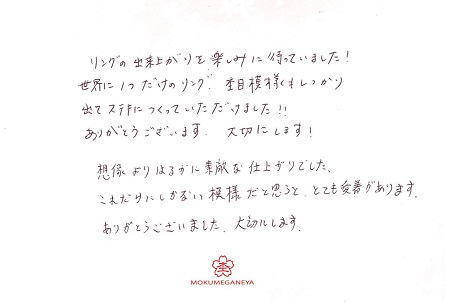 リングの出来上がりを楽しみに待っていました！
世界に1つだけのリング、杢目模様もしっかり
出てステキにつくっていただけました!!
ありがとうございます。大切にします！
想像よりはるかに素敵な仕上がりでした。
これだけにしかない模様だと思うと、とても愛着があります。
ありがとうございました。大切にします。
杢
MOKUMEGANEYA